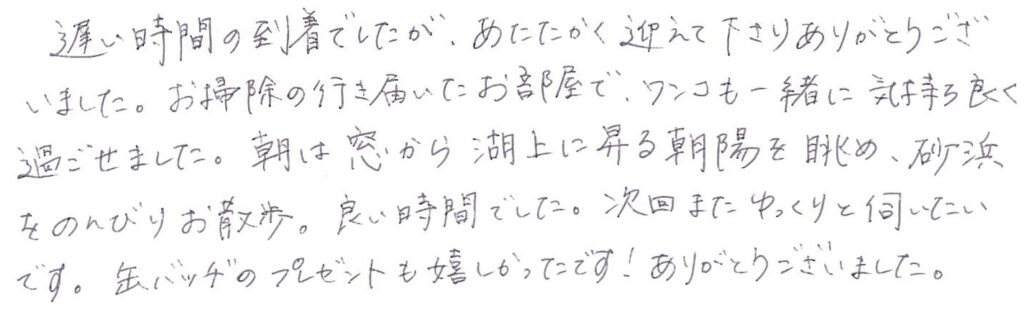 遅い時間の到着でしたが、あたたかく迎えて下さりありがとうござ
いました。お掃除の行き届いたお部屋で、ワンコも一緒に気持ち良く
過ごせました。朝は窓から湖上に昇る朝陽を眺め、砂浜
をのんびりお散歩。良い時間でした。次回またゆっくりと伺いたい
です。缶バッヂのプレゼントも嬉しかったです！ありがとうございました。